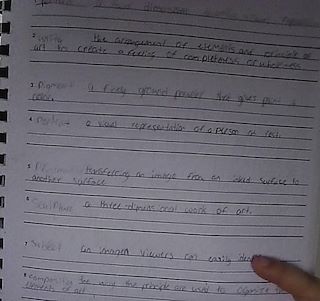 2. Unity the arrangement of elements and principles of
art to create a feeling of completeness or wholeness.
3. Pigment a finely ground powder that gives paint its
color.
4. Portrait a visual representation of a person at rest.
5. transferring an image from an inked surface to
another surface
6. Sculpture a three-dimensional work of art.
7. Subject an image viewers can easily
8. composition the way the principles are used to organize the
elements of art.